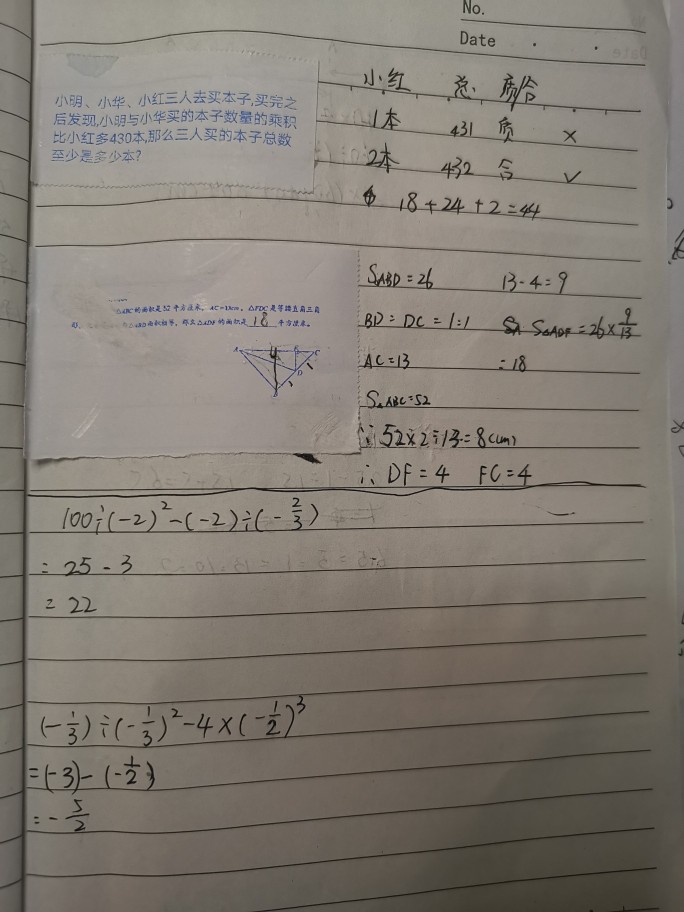 No.
Date
小明、小华、小红三人去买本子,买完之
后发现,小明与小华买的本子数量的乘积
比小红多430本,那么三人买的本子总数
至少是多少本?
小红 总 质合
1本 431 质 ×
2本 432 合 ✓
18+24+2=44
△ABC的面积是52平方厘米，AC=13cm，△FDC是等腰直角三角
△ABD面积相等，那么△ADF的面积是 18 平方厘米。
S△ABD=26 13-4=9
BD:DC=1:1 S△ADF=26×9/13
AC=13 =18
S△ABC=52
∴52×2÷13=8(cm)
∴DF=4 FC=4
100÷(-2)²-(-2)÷(-2/3)
=25-3
=22
(-1/3)÷(-1/3)²-4×(-1/2)³
=(-3)-(-1/2)
=-5/2